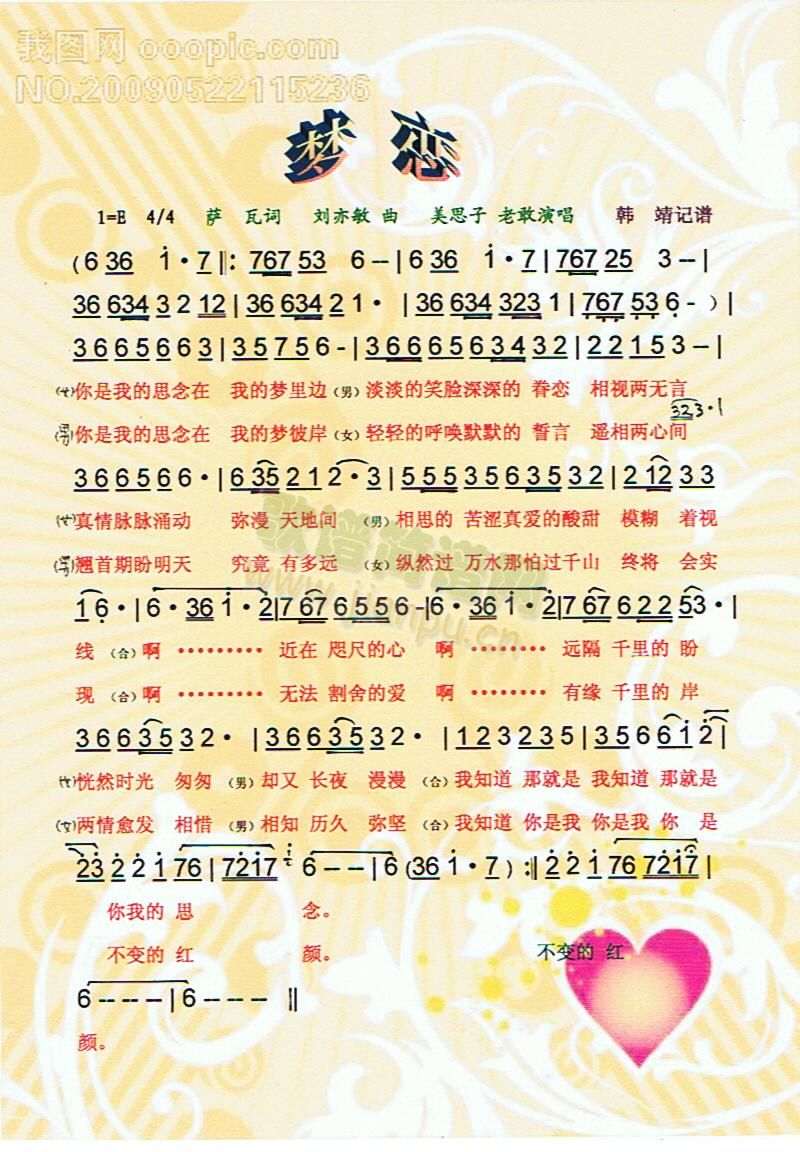 我图网 ooopic.com
NO.20090522115236
梦 恋
1=E 4/4 萨 瓦词 刘亦敏 曲 美思子 老敢演唱 韩 靖记谱
(6 36 1·7 ‖: 767 53 6-- | 6 36 1·7 | 767 25 3--|
36 634 3 2 12 | 36 634 2 1· | 36 634 323 1 | 767 53 6 - ) |
3 6 6 5 6 6 3 | 3 5 7 5 6 - | 3 6 6 6 5 6 3 4 3 2 | 2 2 1 5 3 -- |
(女)你是我的思念在 我的梦里边 (男) 淡淡的笑脸深深的 眷恋 相视两无言
323·|
(男)你是我的思念在 我的梦彼岸 (女) 轻轻的呼唤默默的 誓言 遥相两心间
3 6 6 5 6 6· | 6 35 2 1 2·3 | 5 5 5 3 5 6 3 5 3 2 | 2 12 3 3
(女)真情脉脉涌动 弥漫 天地间 (男) 相思的 苦涩真爱的酸甜 模糊 着视
(男)翘首期盼明天 究竟 有多远 (女) 纵然过 万水那怕过千山 终将 会实
歌谱简谱网
www.jianpu.cn
1 6· | 6·36 1·2 | 7 67 6 5 5 6 -| 6·36 1·2 | 7 67 6 2 2 53·|
线 (合) 啊 ········· 近在 咫尺的心 啊 ········ 远隔 千里的 盼
现 (合) 啊 ········· 无法 割舍的爱 啊 ········ 有缘 千里的 岸
3 6 6 3 5 3 2· | 3 6 6 3 5 3 2· | 1 2 3 2 3 5 | 3 5 6 6 1 2 |
(女)恍然时光 匆匆 (男) 却又 长夜 漫漫 (合) 我知道 那就是 我知道 那就是
(女)两情愈发 相惜 (男) 相知 历久 弥坚 (合) 我知道 你是我 你是我 你 是
23 2 2 1 76 | 7217 6 -- | 6 (36 1·7 ) :‖ 2 2 1 76 7217 |
你我的 思 念。
不变的 红 颜。 不变的 红
6 -- -- | 6 -- -- ‖
颜。